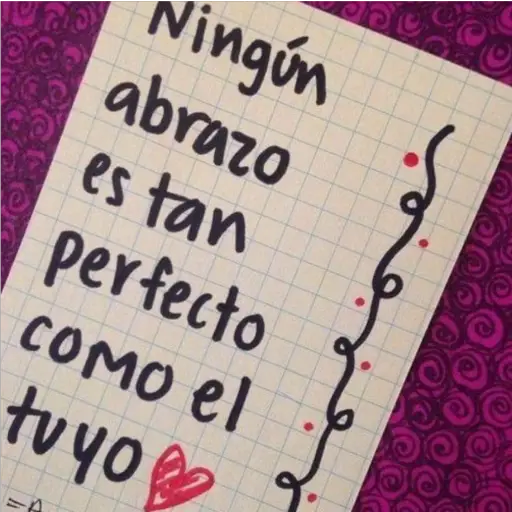 Ningún
abrazo
es tan
perfecto
como el
tuyo